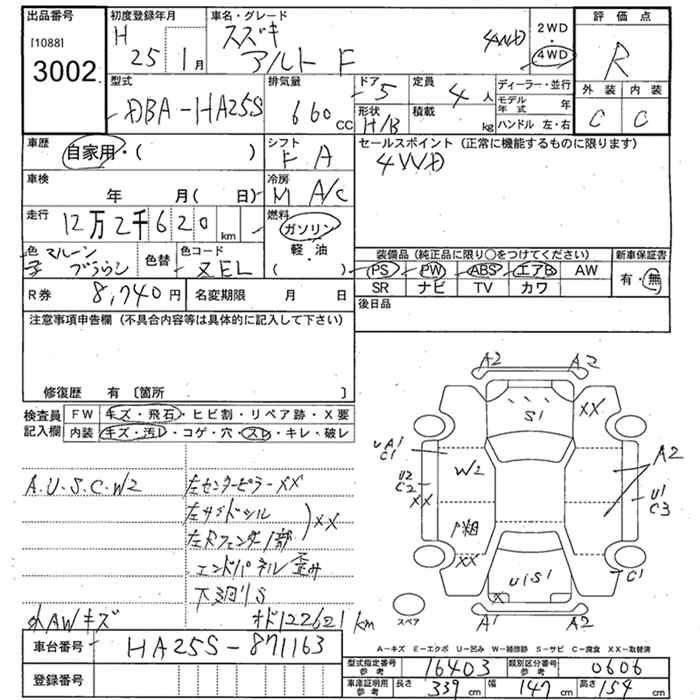 出品番号
[1088]
3002
初度登録年月
H 25年 1月
車名・グレード
スズキ
アルト F
4WD
2WD
・
4WD
評価点
R
外装 内装
C C
型式
DBA-HA25S
排気量
660 CC
ドア
5
定員
4人
形状
H/B
積載
kg
ディーラー・並行
モデル年式 年
ハンドル 左・右
車歴
自家用・( )
シフト
F A
セールスポイント (正常に機能するものに限ります)
4WD
車検
年 月( 日)
冷房
M A/C
走行
12万2千620 km
燃料
ガソリン
軽・油
( )
色
マルーン
ブラウン
色替
色コード
ZEL
装備品 (純正品に限り〇をつけてください)
PS PW ABS エアB AW
SR ナビ TV カワ
新車保証書
有・無
R券
8,740円
名変期限 月 日
後日品
注意事項申告欄 (不具合内容等は具体的に記入して下さい)
修復歴 有 〔箇所 〕
検査員
記入欄
FW キズ・飛石・ヒビ割・リペア跡・X要
内装 キズ・汚レ・コゲ・穴・スレ・キレ・破レ
A.U.S.C.W2
左センターピラーXX
左サイドシル
左Rフェンダー1部
XX
エンドパネル歪み
下廻りS
外AWキズ
オド122621km
A2 A2
S1
XX
UA1
C1
W2
A2
U2
C2
XX
U1
C3
XX
U1S1
X
C1
A1 A2
スペア
車台番号
HA25S-871163
登録番号
A-キズ E-エクボ U-凹み W-補修跡 S-サビ C-腐食 XX-取替済
型式指定番号
参考
16403
類別区分番号
参考
0606
車庫証明用
参考
長さ 339cm 幅 147cm 高さ 154cm